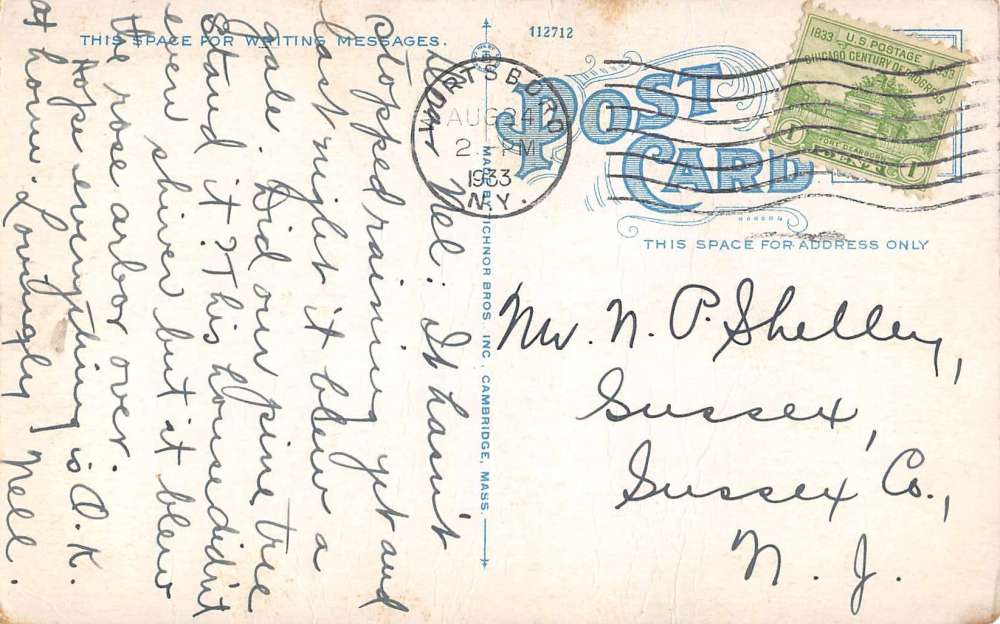 THIS SPACE FOR WRITING MESSAGES.
112712
POST
CARD
THIS SPACE FOR ADDRESS ONLY
WURTSBORO
AUG 24
2 PM
1933
N.Y.
U.S. POSTAGE
1833 1933
CHICAGO CENTURY OF PROGRESS
FORT DEARBORN
1 1
Dear Nel: It hasn't
stopped raining yet and
last night it blew a
gale. Did our pine tree
stand it?? This house didn't
even shiver but it blew
the rose arbor over.
Hope everything is O.K.
at home. Lovingly Nell.
Mr. N. P. Shelley,
Sussex,
Sussex Co.,
N. J.
MADE BY TICHNOR BROS. INC., CAMBRIDGE, MASS.